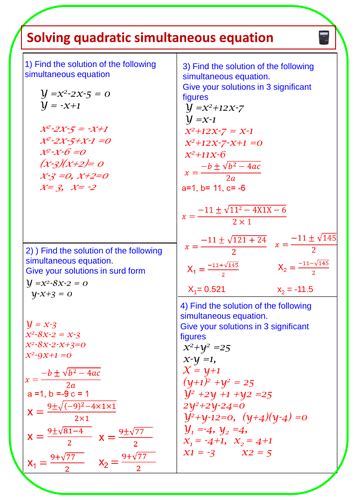 Solving quadratic simultaneous equation
1) Find the solution of the following
simultaneous equation
y =x²-2x-5 = 0
y = -x+1
x²-2x-5 = -x+1
x²-2x-5+x-1 =0
x²-x-6 =0
(x-3)(x+2)= 0
x-3 =0, x+2=0
x= 3, x= -2
2) ) Find the solution of the following
simultaneous equation.
Give your solutions in surd form
y =x²-8x-2 = 0
y-x+3 = 0
y = x-3
x²-8x-2 = x-3
x²-8x-2-x+3=0
x²-9x+1 =0
x = (-b ± √(b² – 4ac))/2a
a =1, b =-9 c = 1
x = (9±√((-9)²-4×1×1))/(2×1)
x = (9±√(81-4))/2 x = (9±√77)/2
x₁ = (9+√77)/2 x₂ = (9+√77)/2
3) Find the solution of the following
simultaneous equation.
Give your solutions in 3 significant
figures
y =x²+12x-7
y =x-1
x²+12x-7 = x-1
x²+12x-7-x+1 =0
x²+11x-6
x = (-b ± √(b² – 4ac))/2a
a=1, b= 11, c= -6
x = (-11 ± √(11² – 4X1X – 6))/(2 × 1)
x = (-11 ± √(121 + 24))/2 x = (-11 ± √145)/2
x₁ = (-11+√145)/2 x₂ = (-11-√145)/2
x₁= 0.521 x₂ = -11.5
4) Find the solution of the following
simultaneous equation.
Give your solutions in 3 significant
figures
x²+y² =25
x-y =1,
x = y+1
(y+1)² +y² = 25
y² +2y +1 +y² =25
2y²+2y-24=0
y²+y-12=0, (y+4)(y-4) =0
y₁ =-4, y₂ =4,
x₁ = -4+1, x₂ = 4+1
x1 = -3 x2 = 5